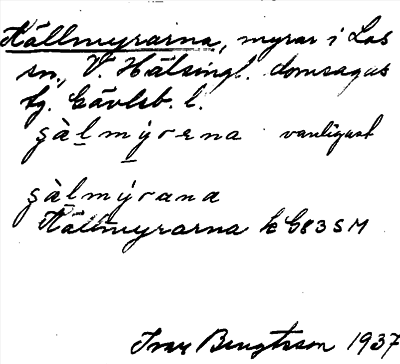 Källmyrarna, myrar i Los
sn, V. Hälsingl. domsagas
tg. Gävleb. l.
şàl̲mýrena vanligast
şàlmýrana
Källmyrarna k G83SM
Ivar Bengtsson 1937